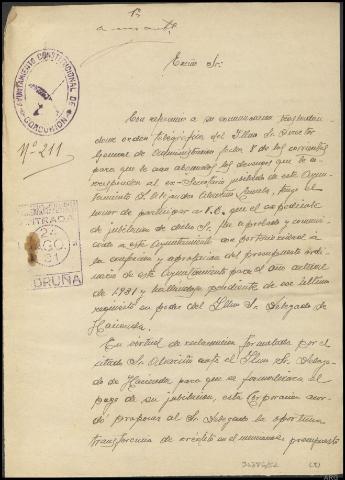 AYUNTAMIENTO CONSTITUCIONAL DE CORCUBIÓN
Nº 211
ENTRADA
24 AGO. 31
CORUÑA
Excmo Sr:
Con referencia a su comunicación trasladan-
do una orden telegráfica del Iltmo Sr Director
General de Administración fecha 8 de los corrientes
para que le sean abonados los devengos que le co-
rresponden al ex-Secretario jubilado de este Ayun-
tamiento D. Alejandro, tengo el
honor de participar a V.E. que el expediente
de jubilación de dicho Sr. fue aprobado y comuni-
cado a este Ayuntamiento con posterioridad a
la confección y aprobación del presupuesto ordi-
nario de este Ayuntamiento para el año actual
de 1931 y hallándose pendiente de ese último
requisito en poder del Iltmo Sr Delegado de
Hacienda.
En virtud de reclamación formulada por el
citado Sr. ante el Iltmo Sr Delega-
do de Hacienda para que se formalizara el
pago de su jubilación, esta Corporación acor-
dó proponer al Sr Delegado la oportuna
transferencia de crédito en el mencionado presupuesto